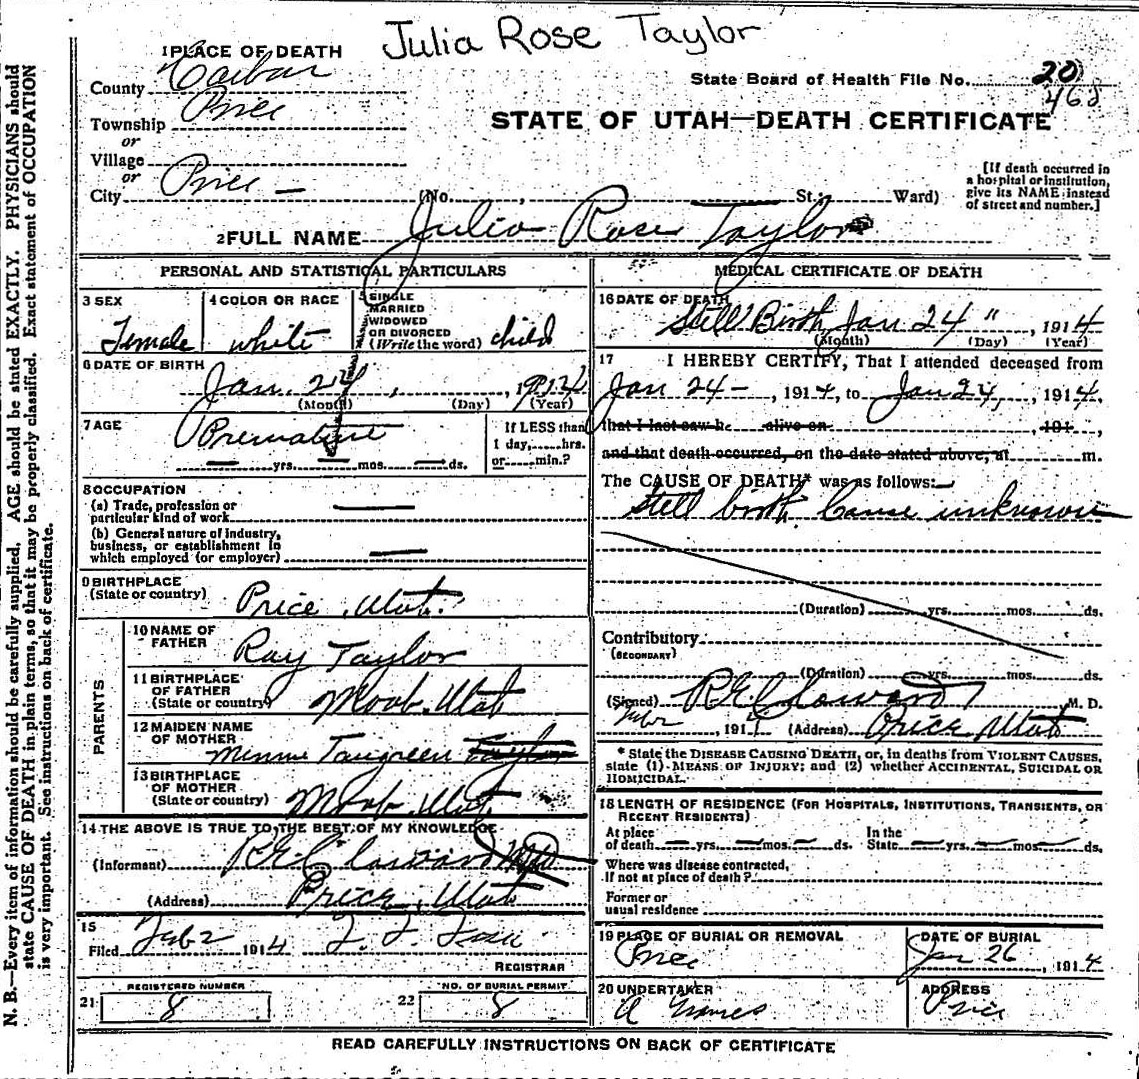 Julia Rose Taylor
1 PLACE OF DEATH
County Carbon
State Board of Health File No. 20
468
Township Price
or
STATE OF UTAH—DEATH CERTIFICATE
Village
or
City Price —
(No. , St.; Ward)
[If death occurred in
a hospital or institution,
give its NAME instead
of street and number.]
2 FULL NAME Julia Rose Taylor
PERSONAL AND STATISTICAL PARTICULARS
3 SEX
Female
4 COLOR OR RACE
white
5 SINGLE
MARRIED
WIDOWED
OR DIVORCED
(Write the word) child
6 DATE OF BIRTH
Jan. 24, 1914
(Month) (Day) (Year)
7 AGE
Premature
— yrs. — mos. — ds.
If LESS than
1 day, hrs.
or min.?
8 OCCUPATION
(a) Trade, profession or
particular kind of work —
(b) General nature of industry,
business, or establishment in
which employed (or employer) —
9 BIRTHPLACE
(State or country) Price, Utah.
PARENTS
10 NAME OF
FATHER Ray Taylor
11 BIRTHPLACE
OF FATHER
(State or country) Moab, Utah
12 MAIDEN NAME
OF MOTHER Minnie Taylor
13 BIRTHPLACE
OF MOTHER
(State or country) Moab, Utah
14 THE ABOVE IS TRUE TO THE BEST OF MY KNOWLEDGE
(Informant)
(Address) Price, Utah
15
Filed Feb 2 1914
REGISTRAR
21 REGISTERED NUMBER
8
22 NO. OF BURIAL PERMIT
8
MEDICAL CERTIFICATE OF DEATH
16 DATE OF DEATH
Still Birth Jan 24 ", 1914
(Month) (Day) (Year)
17 I HEREBY CERTIFY, That I attended deceased from
Jan 24 -, 1914, to Jan 24, 1914.
that I last saw h alive on , 191 ,
and that death occurred, on the date stated above, at m.
The CAUSE OF DEATH* was as follows:
still birth. Cause unknown
(Duration) yrs. mos. ds.
Contributory
(SECONDARY)
(Duration) yrs. mos. ds.
(Signed) M. D.
, 1914 (Address) Price, Utah
* State the DISEASE CAUSING DEATH, or, in deaths from VIOLENT CAUSES,
state (1) MEANS OF INJURY; and (2) whether ACCIDENTAL, SUICIDAL OR
HOMICIDAL.
18 LENGTH OF RESIDENCE (FOR HOSPITALS, INSTITUTIONS, TRANSIENTS, OR
RECENT RESIDENTS)
At place
of death — yrs. — mos. — ds.
In the
State — yrs. — mos. — ds.
Where was disease contracted,
if not at place of death?
Former or
usual residence
19 PLACE OF BURIAL OR REMOVAL
Price
DATE OF BURIAL
Jan 26, 1914
20 UNDERTAKER
ADDRESS
Price
READ CAREFULLY INSTRUCTIONS ON BACK OF CERTIFICATE
N. B.—Every item of information should be carefully supplied. AGE should be stated EXACTLY. PHYSICIANS should
state CAUSE OF DEATH in plain terms, so that it may be properly classified. Exact statement of OCCUPATION
is very important. See instructions on back of certificate.